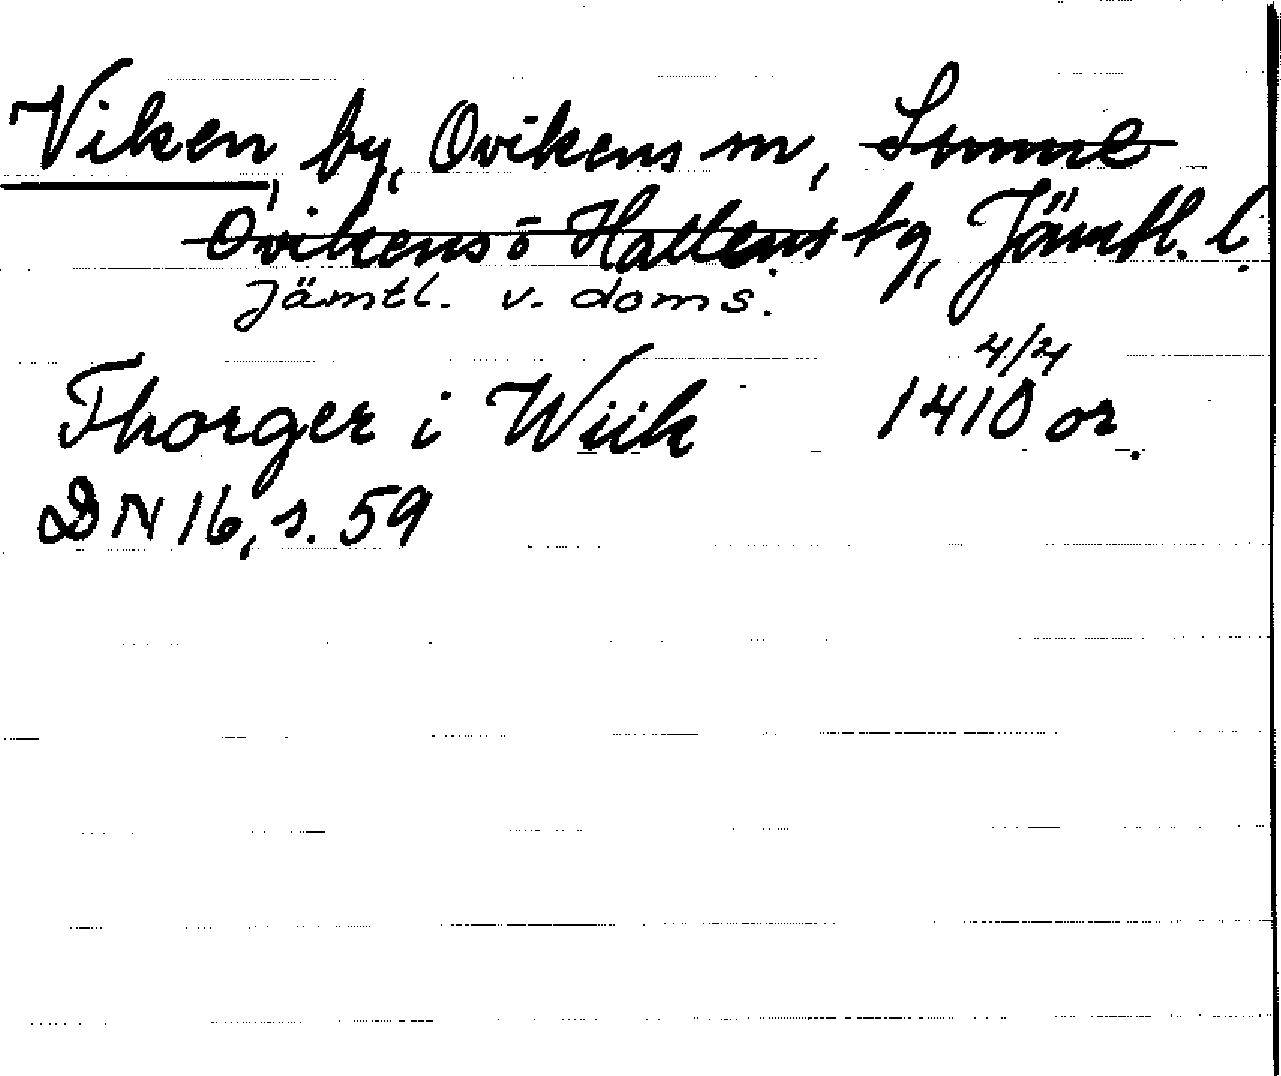 Viken, by, Ovikens sn, Sunne
Ovikens o Hallens tg, Jämtl. l.
Jämtl. v. doms.
4/4
Thorger i Wiik 1410 or.
DN 16, s. 59